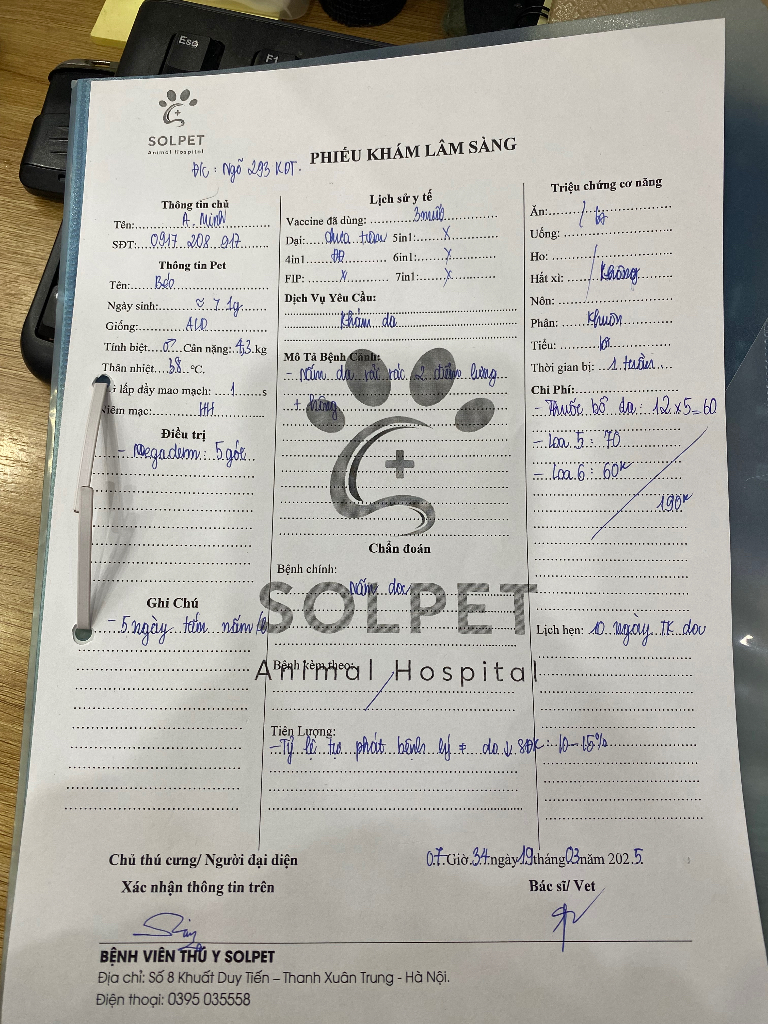 Esc
F1
SOLPET
Animal Hospital
PHIẾU KHÁM LÂM SÀNG
Đ/c: Ngõ 293 KDT.
Thông tin chủ
Tên: A. Minh
SĐT: 0917 208 917
Thông tin Pet
Tên: Beo
Ngày sinh: ≈ 7.1g
Giống: ALD
Tính biệt: ♂ Cân nặng: 4,3 kg
Thân nhiệt: 38 °C.
lấp đầy mao mạch: 1 s
Niêm mạc: HH
Điều trị
- Megaderm: 5 gói
Ghi Chú
- 5 ngày tắm nấm
Lịch sử y tế
Vaccine đã dùng: 3 mũi
Dại: chưa tiêm 5in1: X
4in1 6in1: X
FIP: X 7in1: X
Dịch Vụ Yêu Cầu:
Khám da
Mô Tả Bệnh Cảnh:
- Nấm da rải rác 2 điểm lưng
+ hông
SOLPET
Animal Hospital
Chẩn đoán
Bệnh chính:
Nấm da
Bệnh kèm theo:
Tiên Lượng:
- Tỷ lệ tự phát bệnh lý ≠ do ↓ SĐK: 10-15%
Triệu chứng cơ năng
Ăn:
Uống: bt
Ho:
Hắt xì: Không
Nôn:
Phân: Khuôn
Tiểu: bt
Thời gian bị: 1 tuần
Chi Phí:
- Thuốc bổ da: 12x5=60
- Loa 5: 70
- Loa 6: 60k
190k
Lịch hẹn: 10 ngày TK da
Chủ thú cưng/ Người đại diện
Xác nhận thông tin trên
07 Giờ 34 ngày 19 tháng 03 năm 2025
Bác sĩ/ Vet
BỆNH VIỆN THÚ Y SOLPET
Địa chỉ: Số 8 Khuất Duy Tiến – Thanh Xuân Trung - Hà Nội.
Điện thoại: 0395 035558